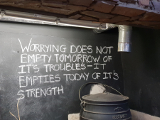 WORRYING DOES NOT
EMPTY TOMORROW OF
IT'S TROUBLES - IT
EMPTIES TODAY OF IT'S
STRENGTH